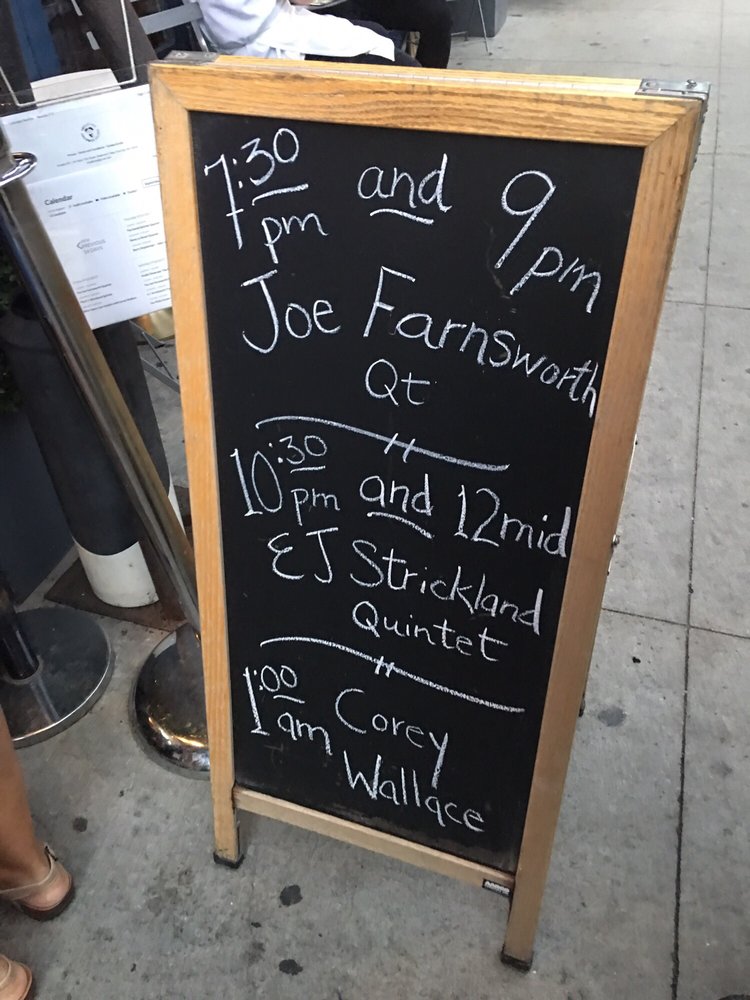 7:30 pm and 9 pm
Joe Farnsworth
Qt
10:30 pm and 12 mid
EJ Strickland
Quintet
1:00 am Corey
Wallace
Calendar